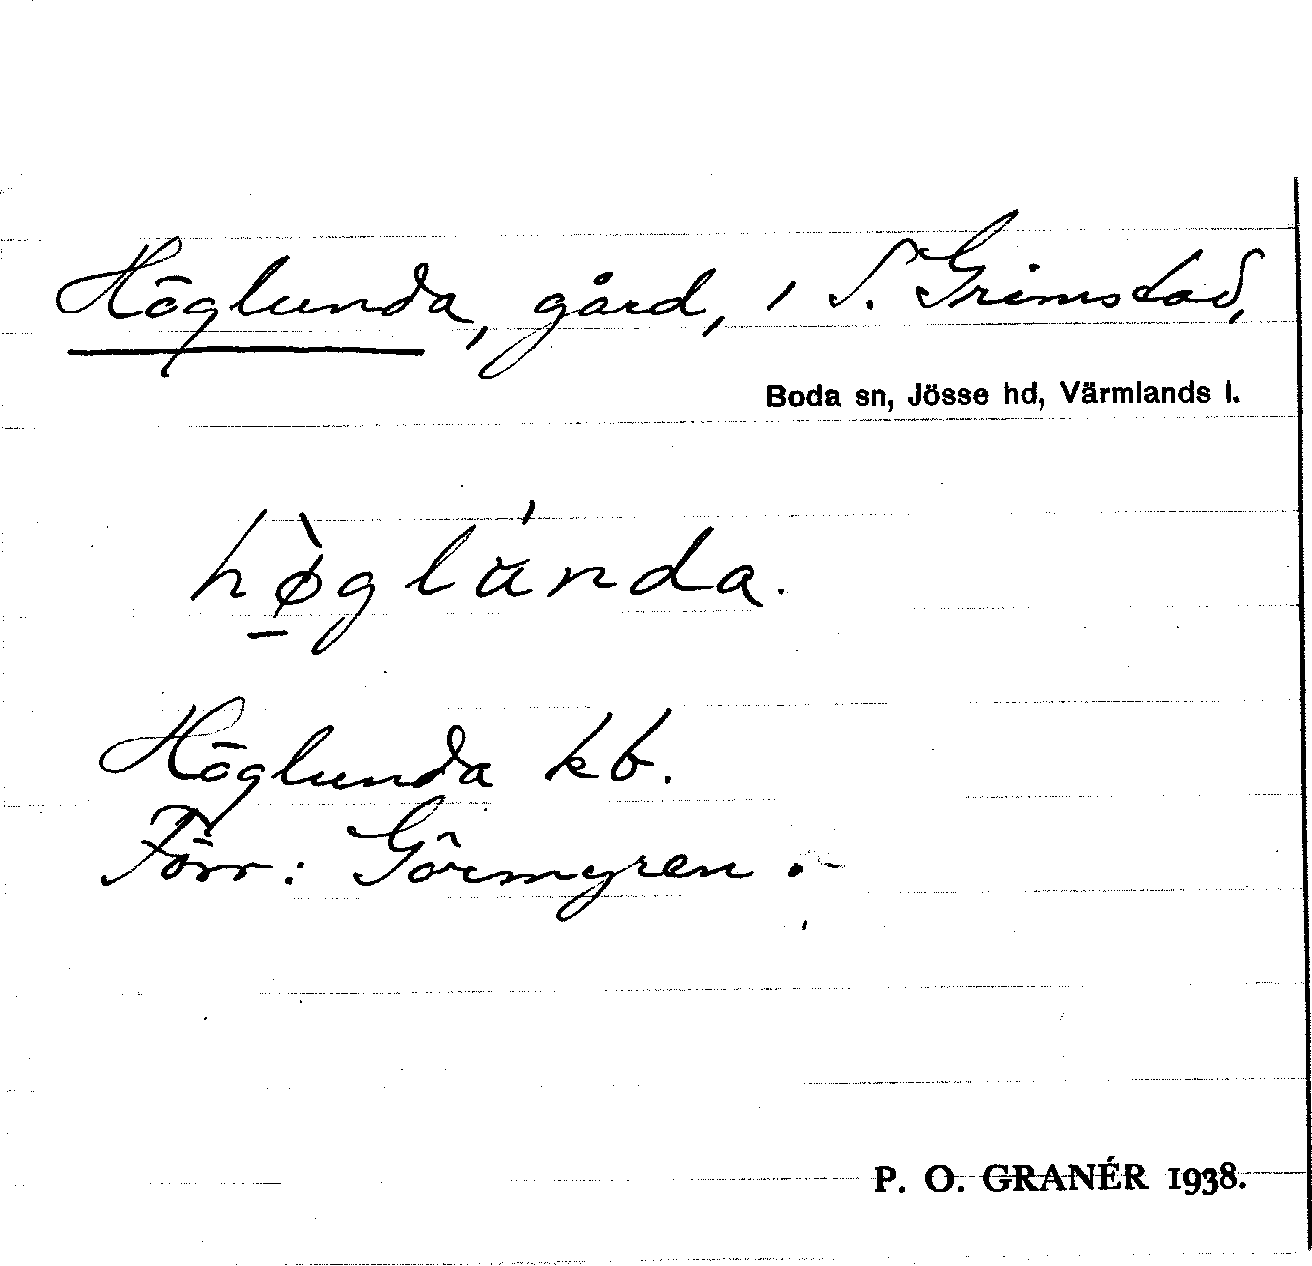 Höglunda, gård, i S. Grimstad,
Boda sn, Jösse hd, Värmlands l.
hø̀glánda.
Höglunda kb.
Förr: Görmyren.
P. O. GRANÉR 1938.